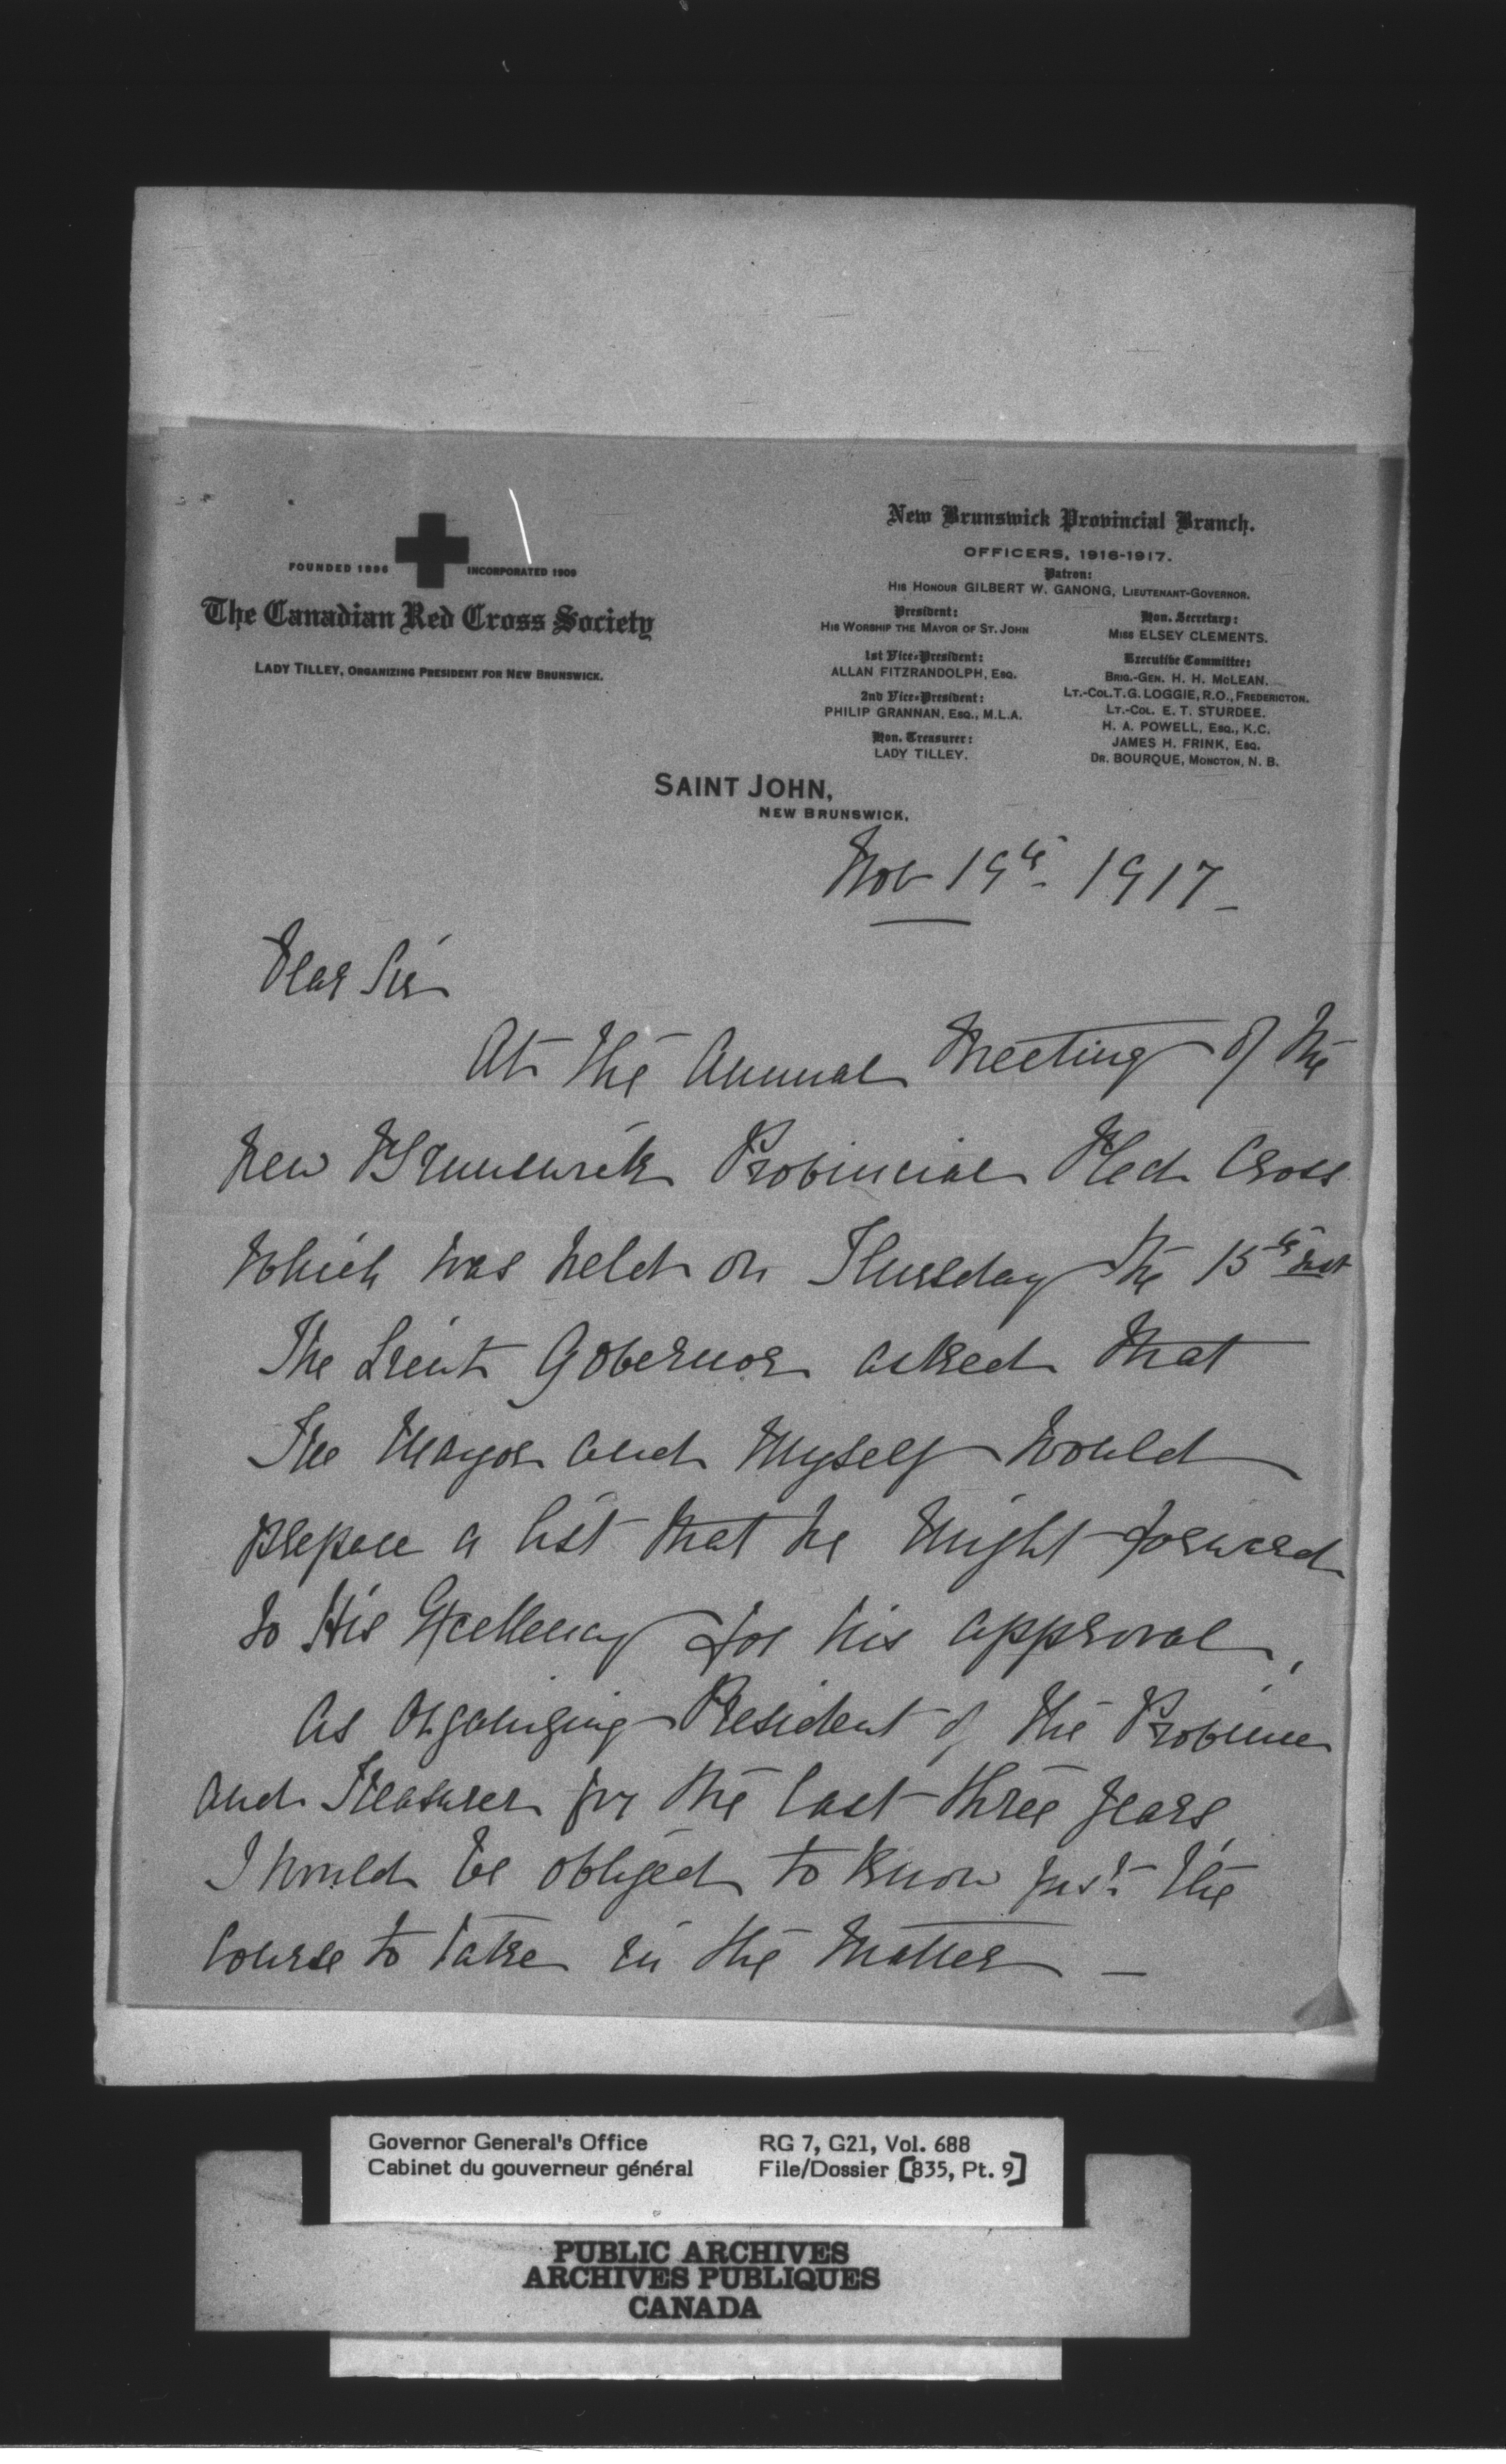 FOUNDED 1896 INCORPORATED 1909
The Canadian Red Cross Society
LADY TILLEY, ORGANIZING PRESIDENT FOR NEW BRUNSWICK.
New Brunswick Provincial Branch.
OFFICERS, 1916-1917.
Patron:
HIS HONOUR GILBERT W. GANONG, LIEUTENANT-GOVERNOR.
President:
HIS WORSHIP THE MAYOR OF ST. JOHN
1st Vice-President:
ALLAN FITZRANDOLPH, ESQ.
2nd Vice-President:
PHILIP GRANNAN, ESQ., M.L.A.
Hon. Treasurer:
LADY TILLEY.
Hon. Secretary:
MISS ELSEY CLEMENTS.
Executive Committee:
BRIG.-GEN. H. H. MCLEAN.
LT.-COL. T. G. LOGGIE, R.O., FREDERICTON.
LT.-COL. E. T. STURDEE.
H. A. POWELL, ESQ., K.C.
JAMES H. FRINK, ESQ.
DR. BOURQUE, MONCTON, N. B.
SAINT JOHN,
NEW BRUNSWICK,
Nov 19th 1917
Dear Sir
At the Annual Meeting of the
New Brunswick Provincial Red Cross
which was held on Thursday the 15th inst
The Lieut Governor asked that
The Mayor and Myself would
prepare a list that he might forward
to His Excellency for his approval,
As Organizing President of the Province
and Treasurer for the last three years,
I would be obliged to know just the
course to take in the matter —
Governor General's Office
Cabinet du gouverneur général
RG 7, G21, Vol. 688
File/Dossier [835, Pt. 9]
PUBLIC ARCHIVES
ARCHIVES PUBLIQUES
CANADA